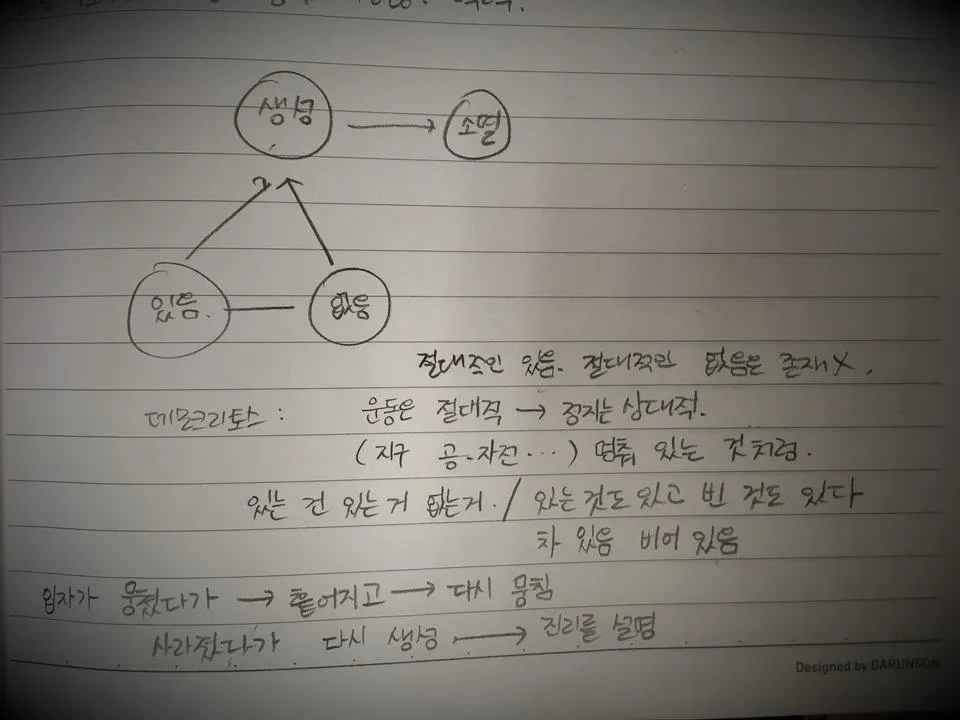 생성 → 소멸
있음. 없음
절대적인 있음. 절대적인 없음은 존재X.
데모크리토스 : 운동은 절대적 → 정지는 상대적.
(지구 공.자전...) 멈춰 있는 것처럼.
있는 건 있는거 없는거. / 있는것도 있고 빈 것도 있다
차 있음 비어 있음
입자가 뭉쳤다가 → 흩어지고 → 다시 뭉침
사라졌다가 다시 생성 → 진리를 설명
Designed by BARUNSON